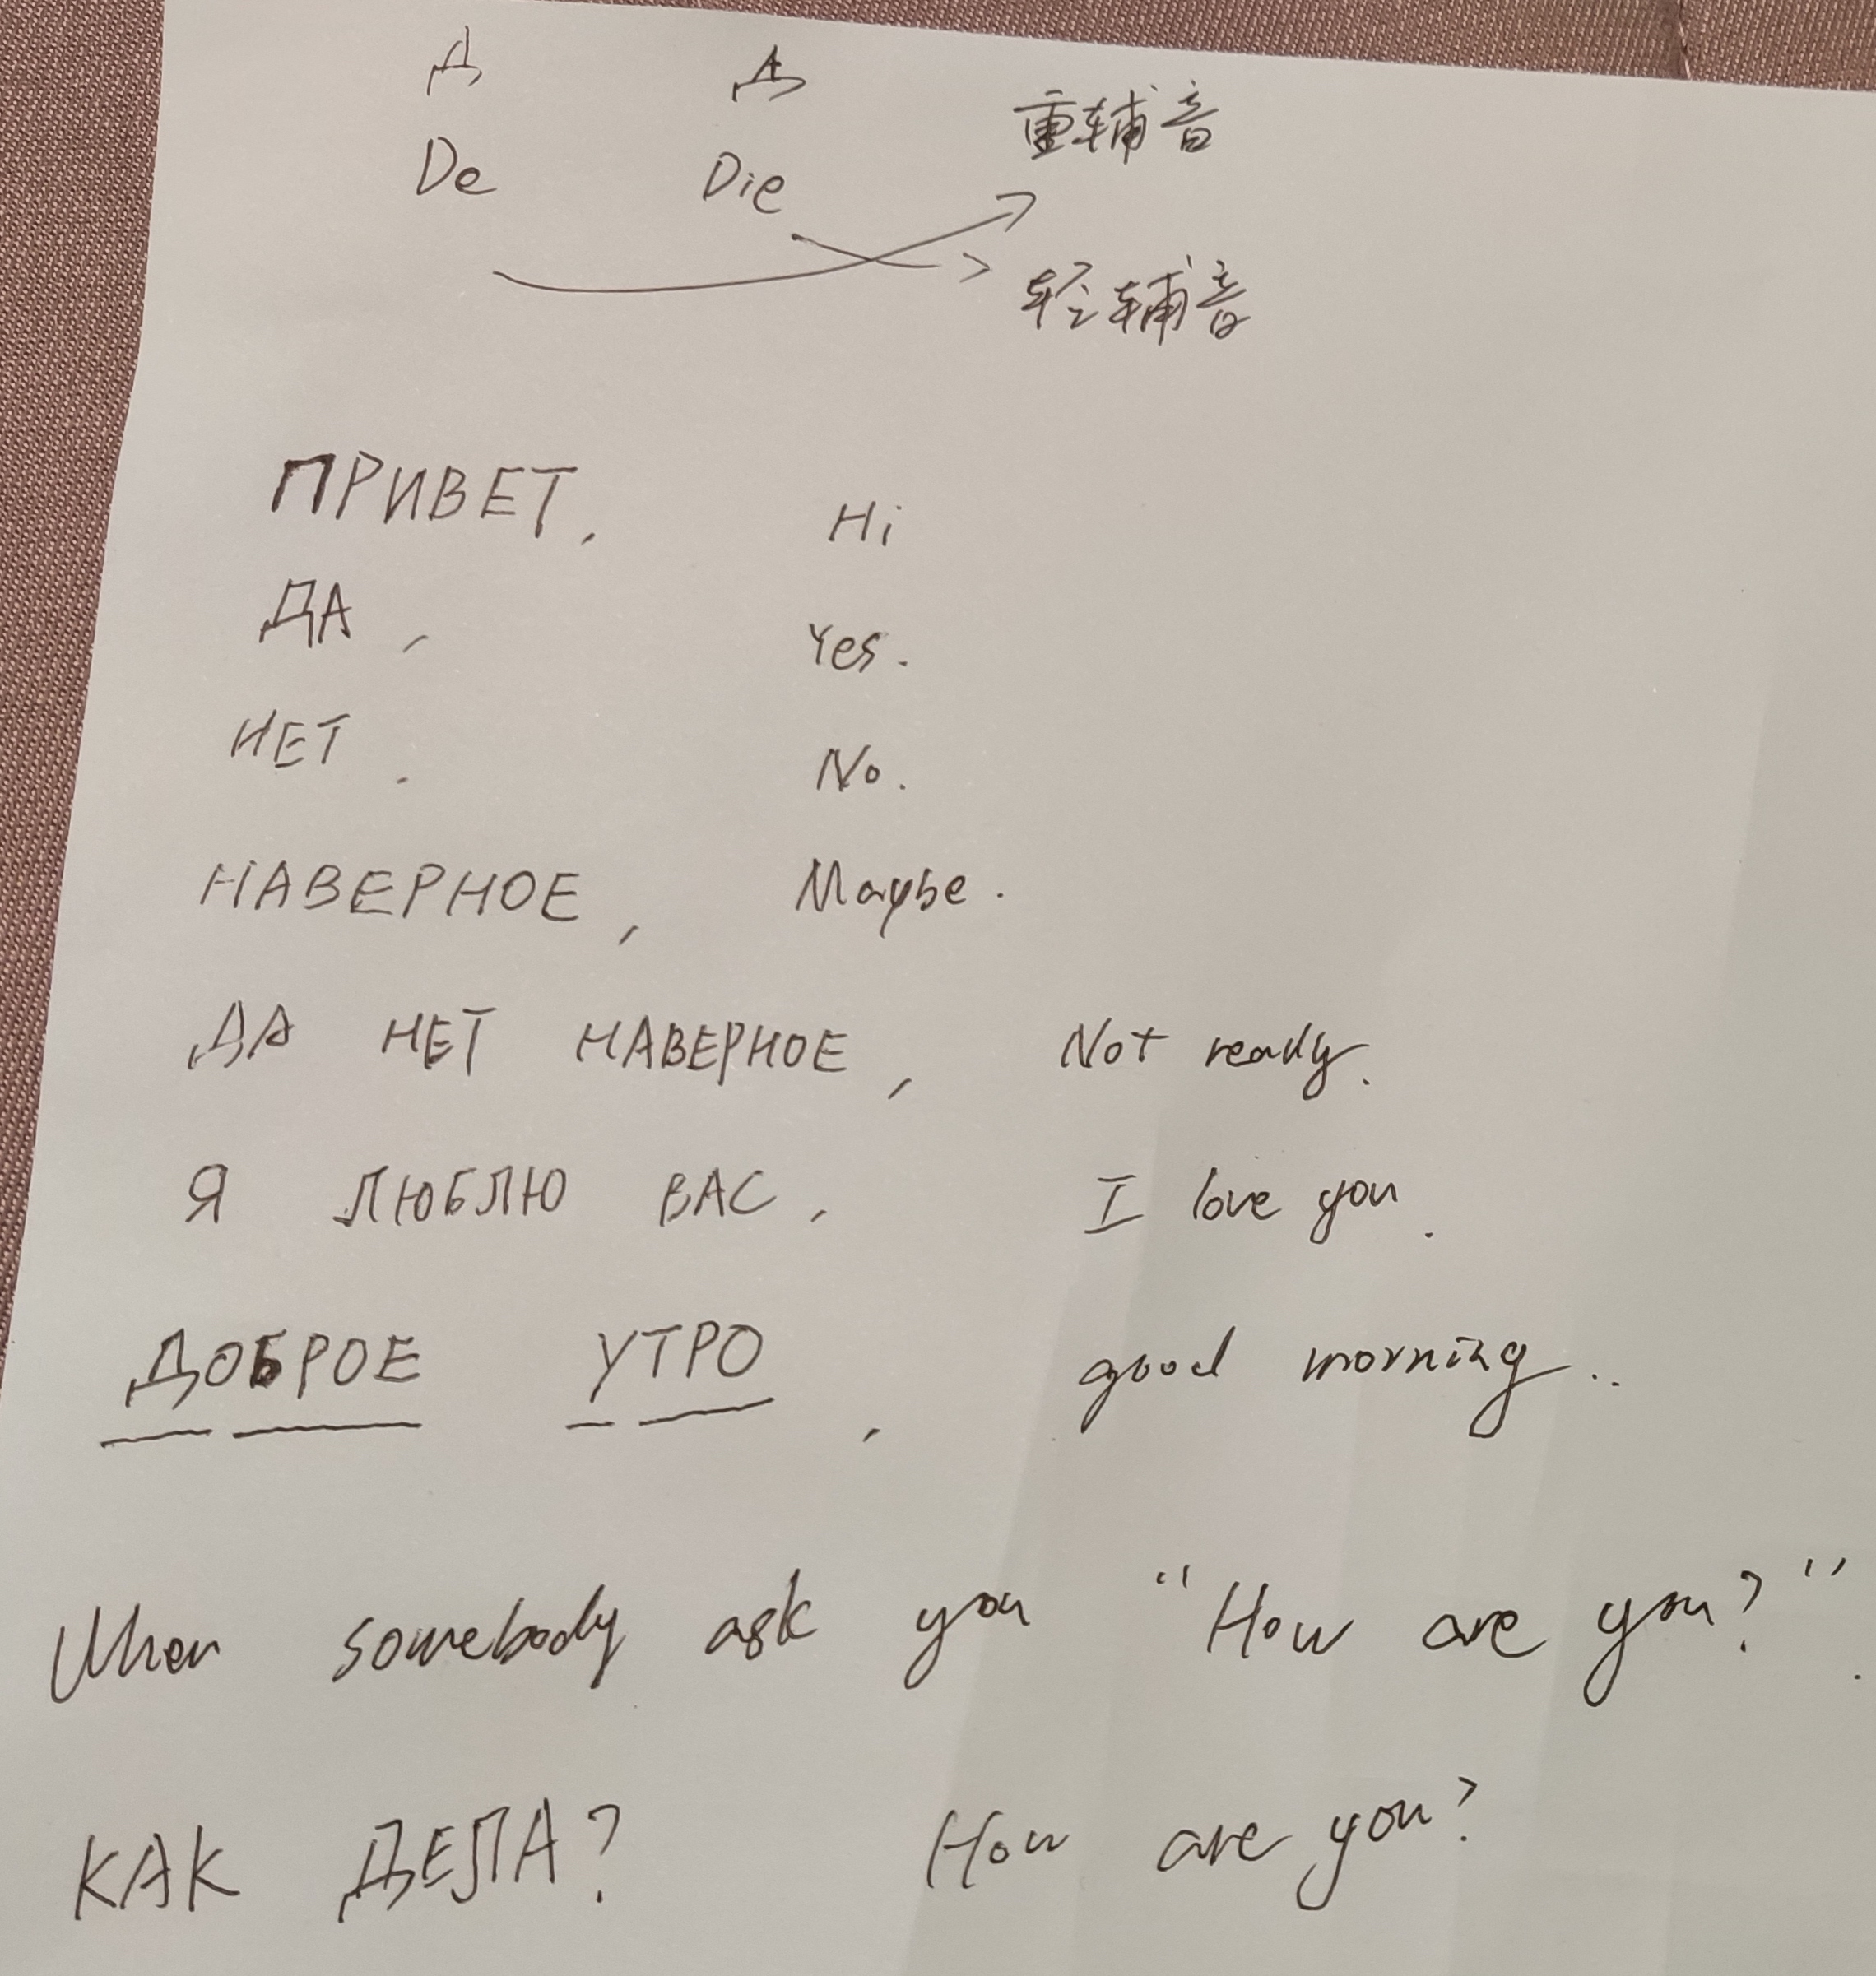 Д Д 重辅音
De Die
轻辅音
ПРИВЕТ, Hi
ДА, Yes.
НЕТ. No.
НАВЕРНОЕ, Maybe.
ДА НЕТ НАВЕРНОЕ, Not ready.
Я ЛЮБЛЮ ВАС, I love you.
ДОБРОЕ УТРО, good morning..
When somebody ask you "How are you?".
КАК ДЕЛА? How are you?